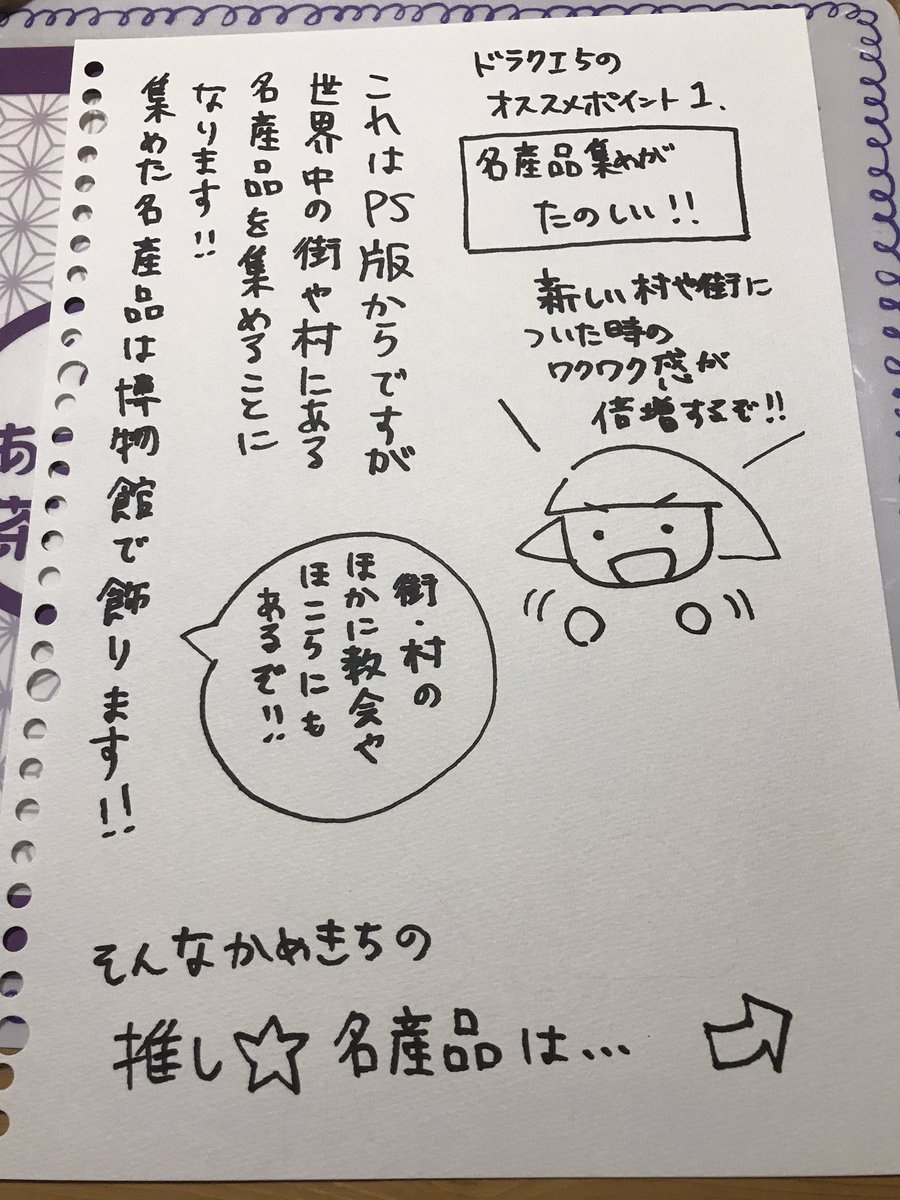 ドラクエ5の
オススメポイント1.
名産品集めが
たのしい!!
新しい村や街に
ついた時の
ワクワク感が
倍増するぞ!!
これはPS版からですが
世界中の街や村にある
名産品を集めることに
なります!!
集めた名産品は博物館で飾ります!!
街・村の
ほかに教会や
ほこらにも
あるぞ!!
そんなかめきちの
推し☆名産品は…
あ
茶